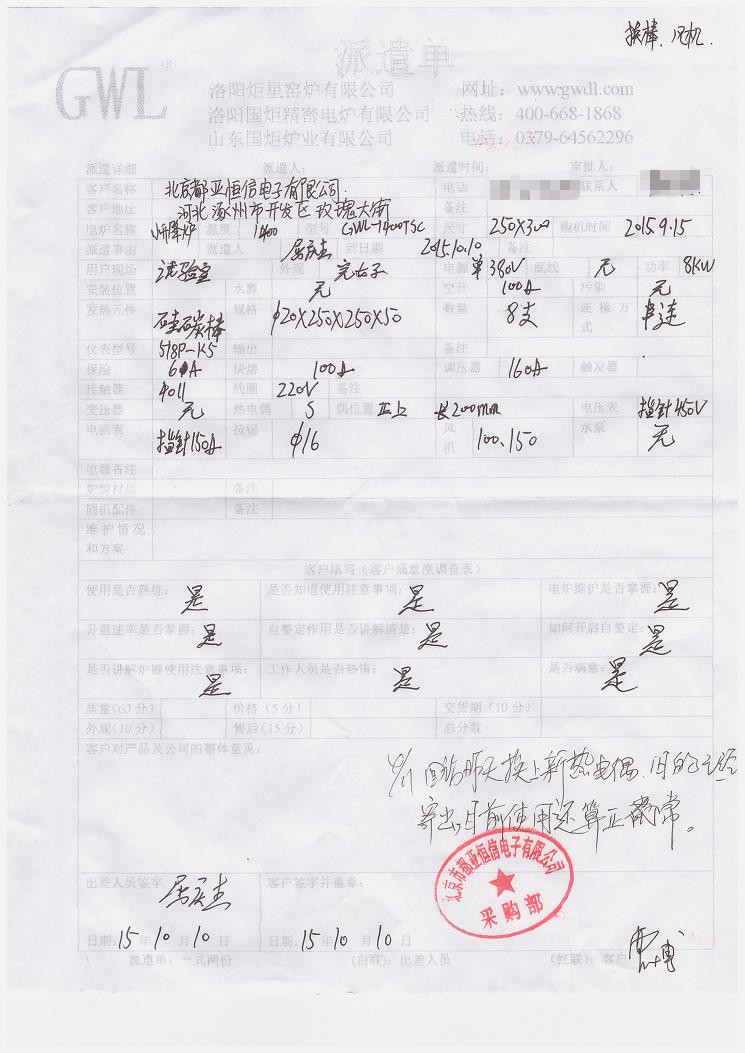 换棒、风机.
派遣单
GWL®
洛阳炬星窑炉有限公司 网址：www.gwdl.com
洛阳国炬精密电炉有限公司 热线：400-668-1868
山东国炬炉业有限公司 电话：0379-64562296
派遣详细 派遣人： 派遣时间： 审批人：
客户名称 北京都亚恒信电子有限公司. 电话 联系人
客户地址 河北涿州市开发区玫瑰大街 备注
电炉名称 升降炉 温度 1400 型号 GWL-1400TSC 尺寸 250X300 购机时间 2015.9.15
派遣事由 派遣人 到日期 2015.10.10 备注
用户现场 试验室 外观 电源 单380V 底线 无 功率 8KW
安装位置 水源 无 空开 100A 污染 无
发热元件 硅碳棒 规格 φ20X250X250X50 数量 8支 连接方式 串连
仪表型号 518P-K5 输出 备注
保险 快熔 100A 调压器 160A 触发器
接触器 4011 线圈 220V 备注
变压器 无 热电偶 S 偶位置 正上 长200mm 电压表 指针450V
电流表 指针150A 按钮 φ16 风机 100.150 水泵 无
电器备注
炉膛材质 备注
随机配件 备注
维护情况和方案
客户填写（客户成意度调查表）
使用是否熟练： 是 是否知道使用注意事项： 是 电炉维护是否掌握： 是
升温速率是否掌握： 是 自整定作用是否讲解清楚： 是 如何开启自整定： 是
是否讲解炉膛使用注意事项： 是 工作人员是否热情： 是 是否满意： 是
质量(60分) 价格（5分） 交货期（10分）
外观(10分) 售后(15分) 总分数
客户对产品及公司的整体意见：
昨天换上新热电偶、旧的已经
寄出,目前使用还算正常。
北京市都亚恒信电子有限公司
采购部
出差人员签字 客户签字并盖章：
日期：15年10月10日 日期：15年10月10日
派遣单：一式两份 (白联)：出差人员 （红联）：客户